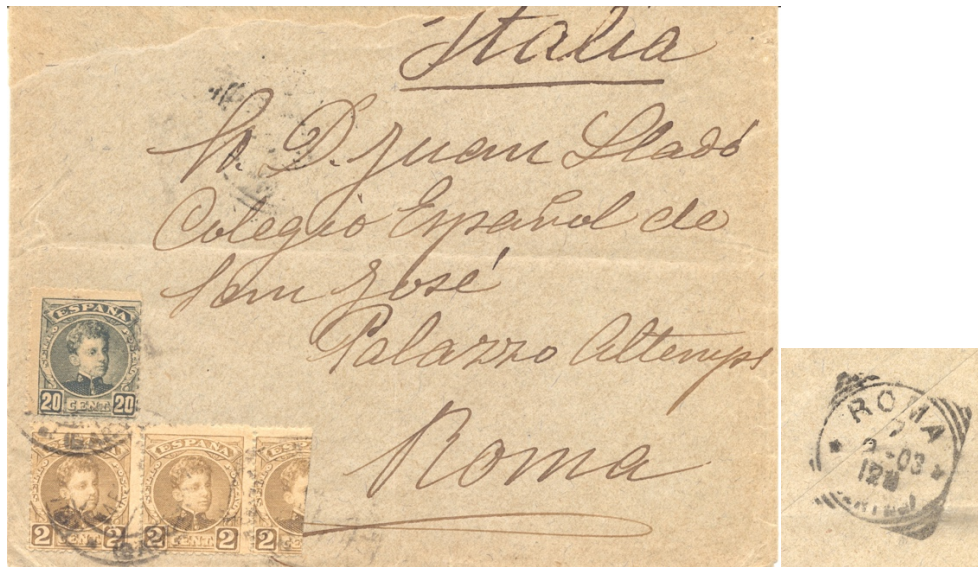 Italia
Sr. D. Juan Lladó
Colegio Español de
San José
Palazzo Altemps
Roma
ESPAÑA
20 CENT. 20
ESPAÑA ESPAÑA ESPAÑA
2 CENT. 2 2 CENT. 2 2 CENT.
ROMA
7
-03
12